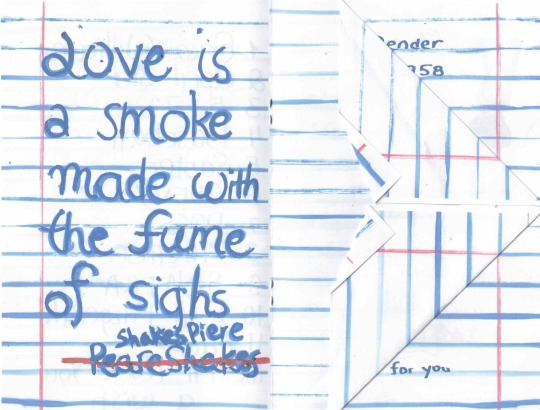 Love is
a smoke
made with
the fume
of sighs
shakesPiere
PeareShakes
for you